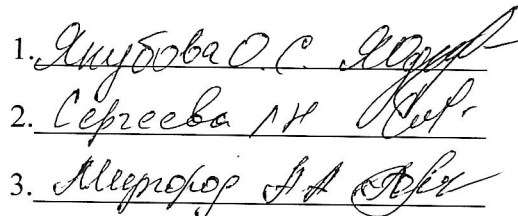 1. Якубова О. С.
2. Сергеева Л Н
3. Миргород А А